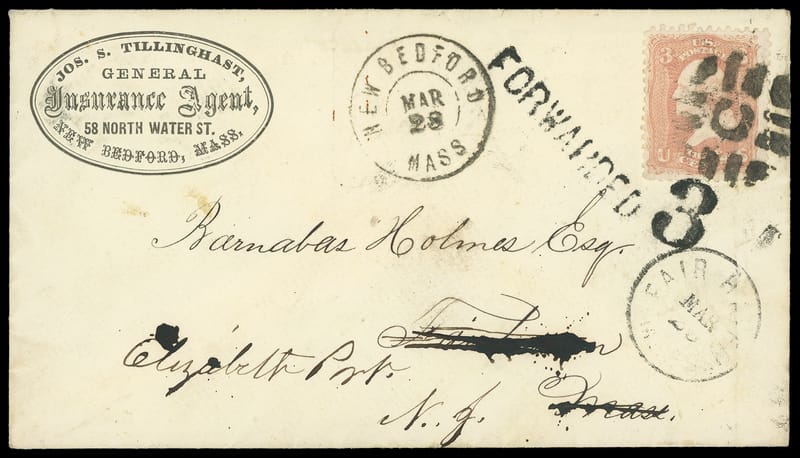 JOS. S. TILLINGHAST,
GENERAL
Insurance Agent,
58 NORTH WATER ST.
NEW BEDFORD, MASS.
NEW BEDFORD
MAR
28
MASS
FORWARDED
3
3
U.S.
POSTAGE
U
FAIR HA
MAR
Barnabas Holmes Esq.
Elizabeth Port.
N. J.
Mass.